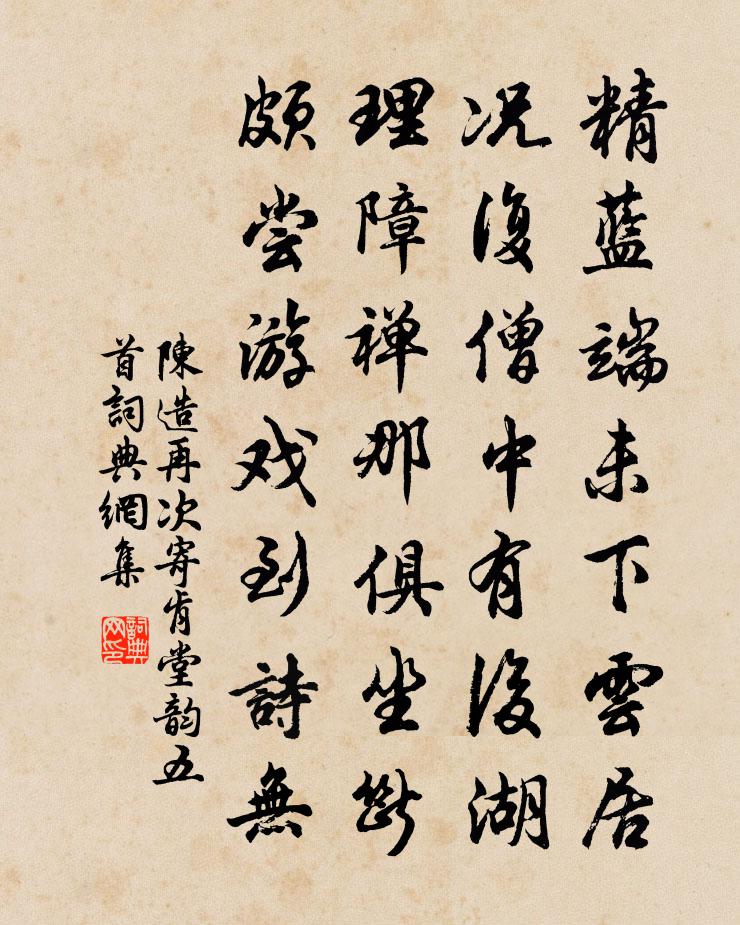 精藍端未下雲居
况復僧中有後湖
理障禅那俱坐斷
頗尝游戏到詩無
陳造再次寄肯堂韵五
首詞典網集
詞典网印